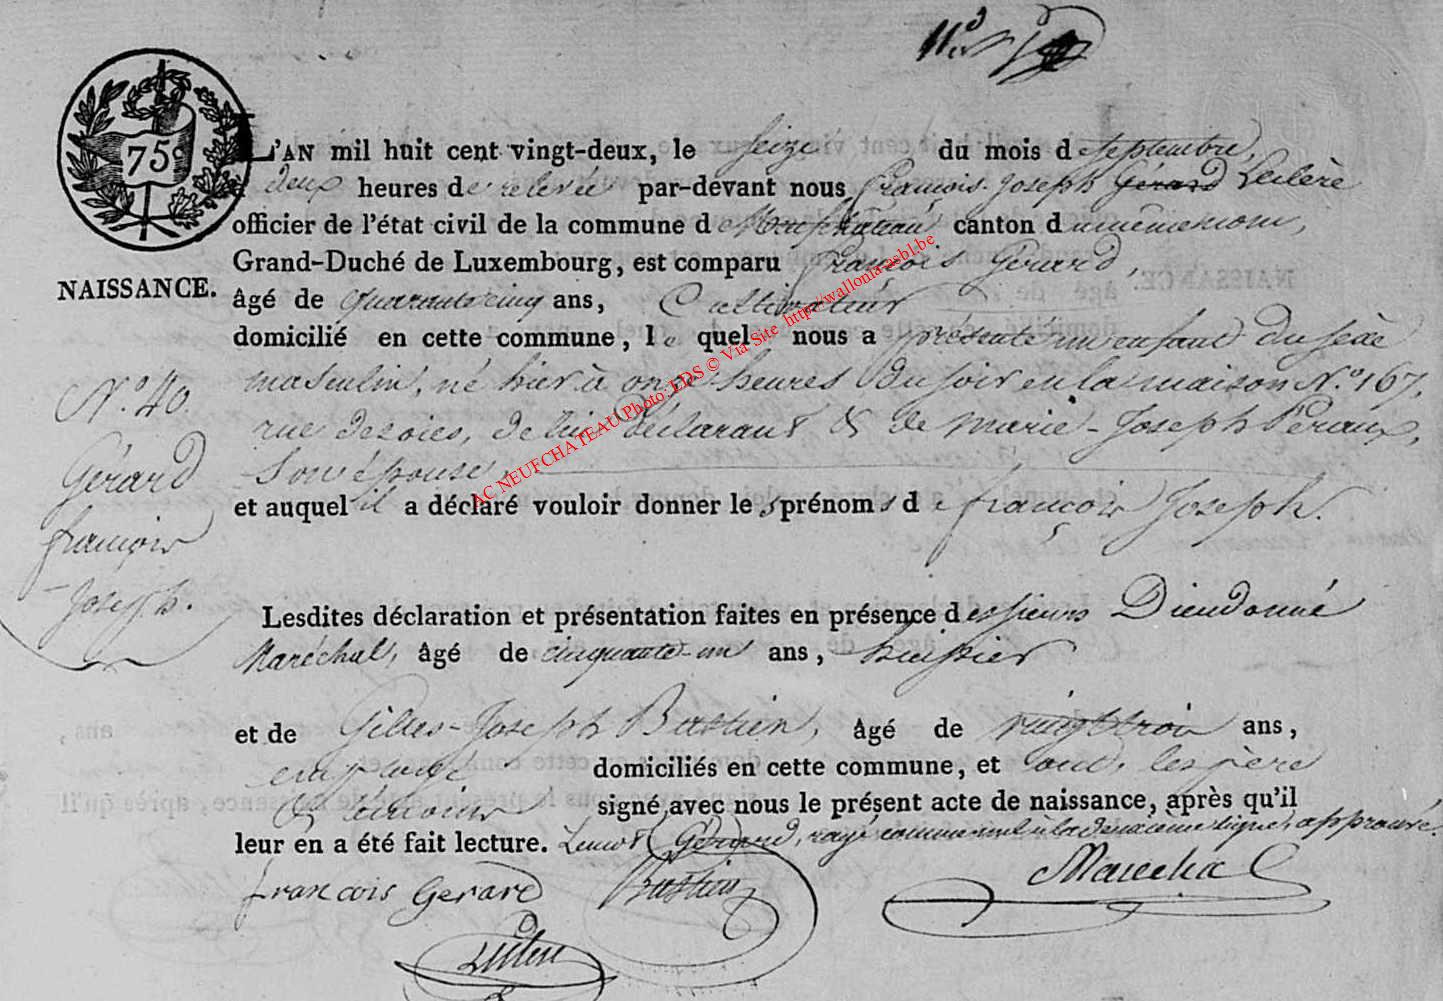 75c
L'AN mil huit cent vingt-deux, le seize du mois de septembre,
à deux heures de relevée par-devant nous françois-Joseph Gérard Leclère
officier de l'état civil de la commune de Neufchâteau canton du même nom,
Grand-Duché de Luxembourg, est comparu françois Gérard,
NAISSANCE.
âgé de quarante cinq ans, Cultivateur
domicilié en cette commune, le quel nous a présenté un enfant du sèxe
masculin, né hier à onze heures du soir en la maison N.o 167,
rue des oies, de lui déclarant & de Marie-Joseph Pérau,
son épouse,
et auquel il a déclaré vouloir donner les prénoms de françois Joseph.
N.o 40
Gérard
françois
Joseph.
Lesdites déclaration et présentation faites en présence des sieurs Dieudonné
Maréchal, âgé de cinquante-un ans, huissier
et de Gilles-Joseph Bastien, âgé de vingt trois ans,
employé domiciliés en cette commune, et ont, les père
& témoins signé avec nous le présent acte de naissance, après qu'il
leur en a été fait lecture. Le mot Gérard, rayé comme nul à la deuxième ligne, approuvé.
françois Gerard Bastien Marechal
Leclere
AC NEUFCHATEAU Photo: EDS © Via Site http://wallonia-asbl.be